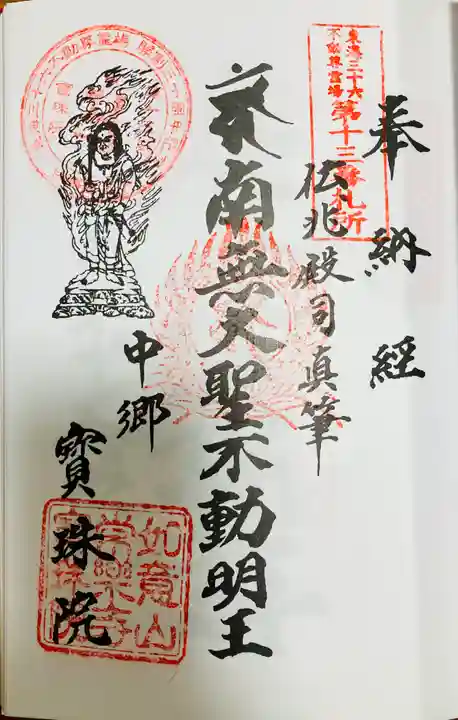 奉納経
東海三十六
不動尊霊場
第十三番札所
伝兆殿司真筆
南無大聖不動明王
中郷
寳珠院
如意山
常樂寺